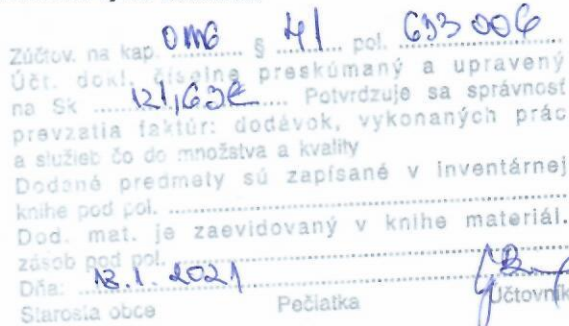 Zúčtov. na kap. OMG § 41 pol. 633 006
Účt. dokl. číselne preskúmaný a upravený
na Sk 121,63€ Potvrdzuje sa správnosť
prevzatia faktúr: dodávok, vykonaných prác
a služieb čo do množstva a kvality
Dodané predmety sú zapísané v inventárnej
knihe pod pol. ....................
Dod. mat. je zaevidovaný v knihe materiál.
zásob pod pol. ....................
Dňa: 13.1.2021
Starosta obce Pečiatka Účtovník